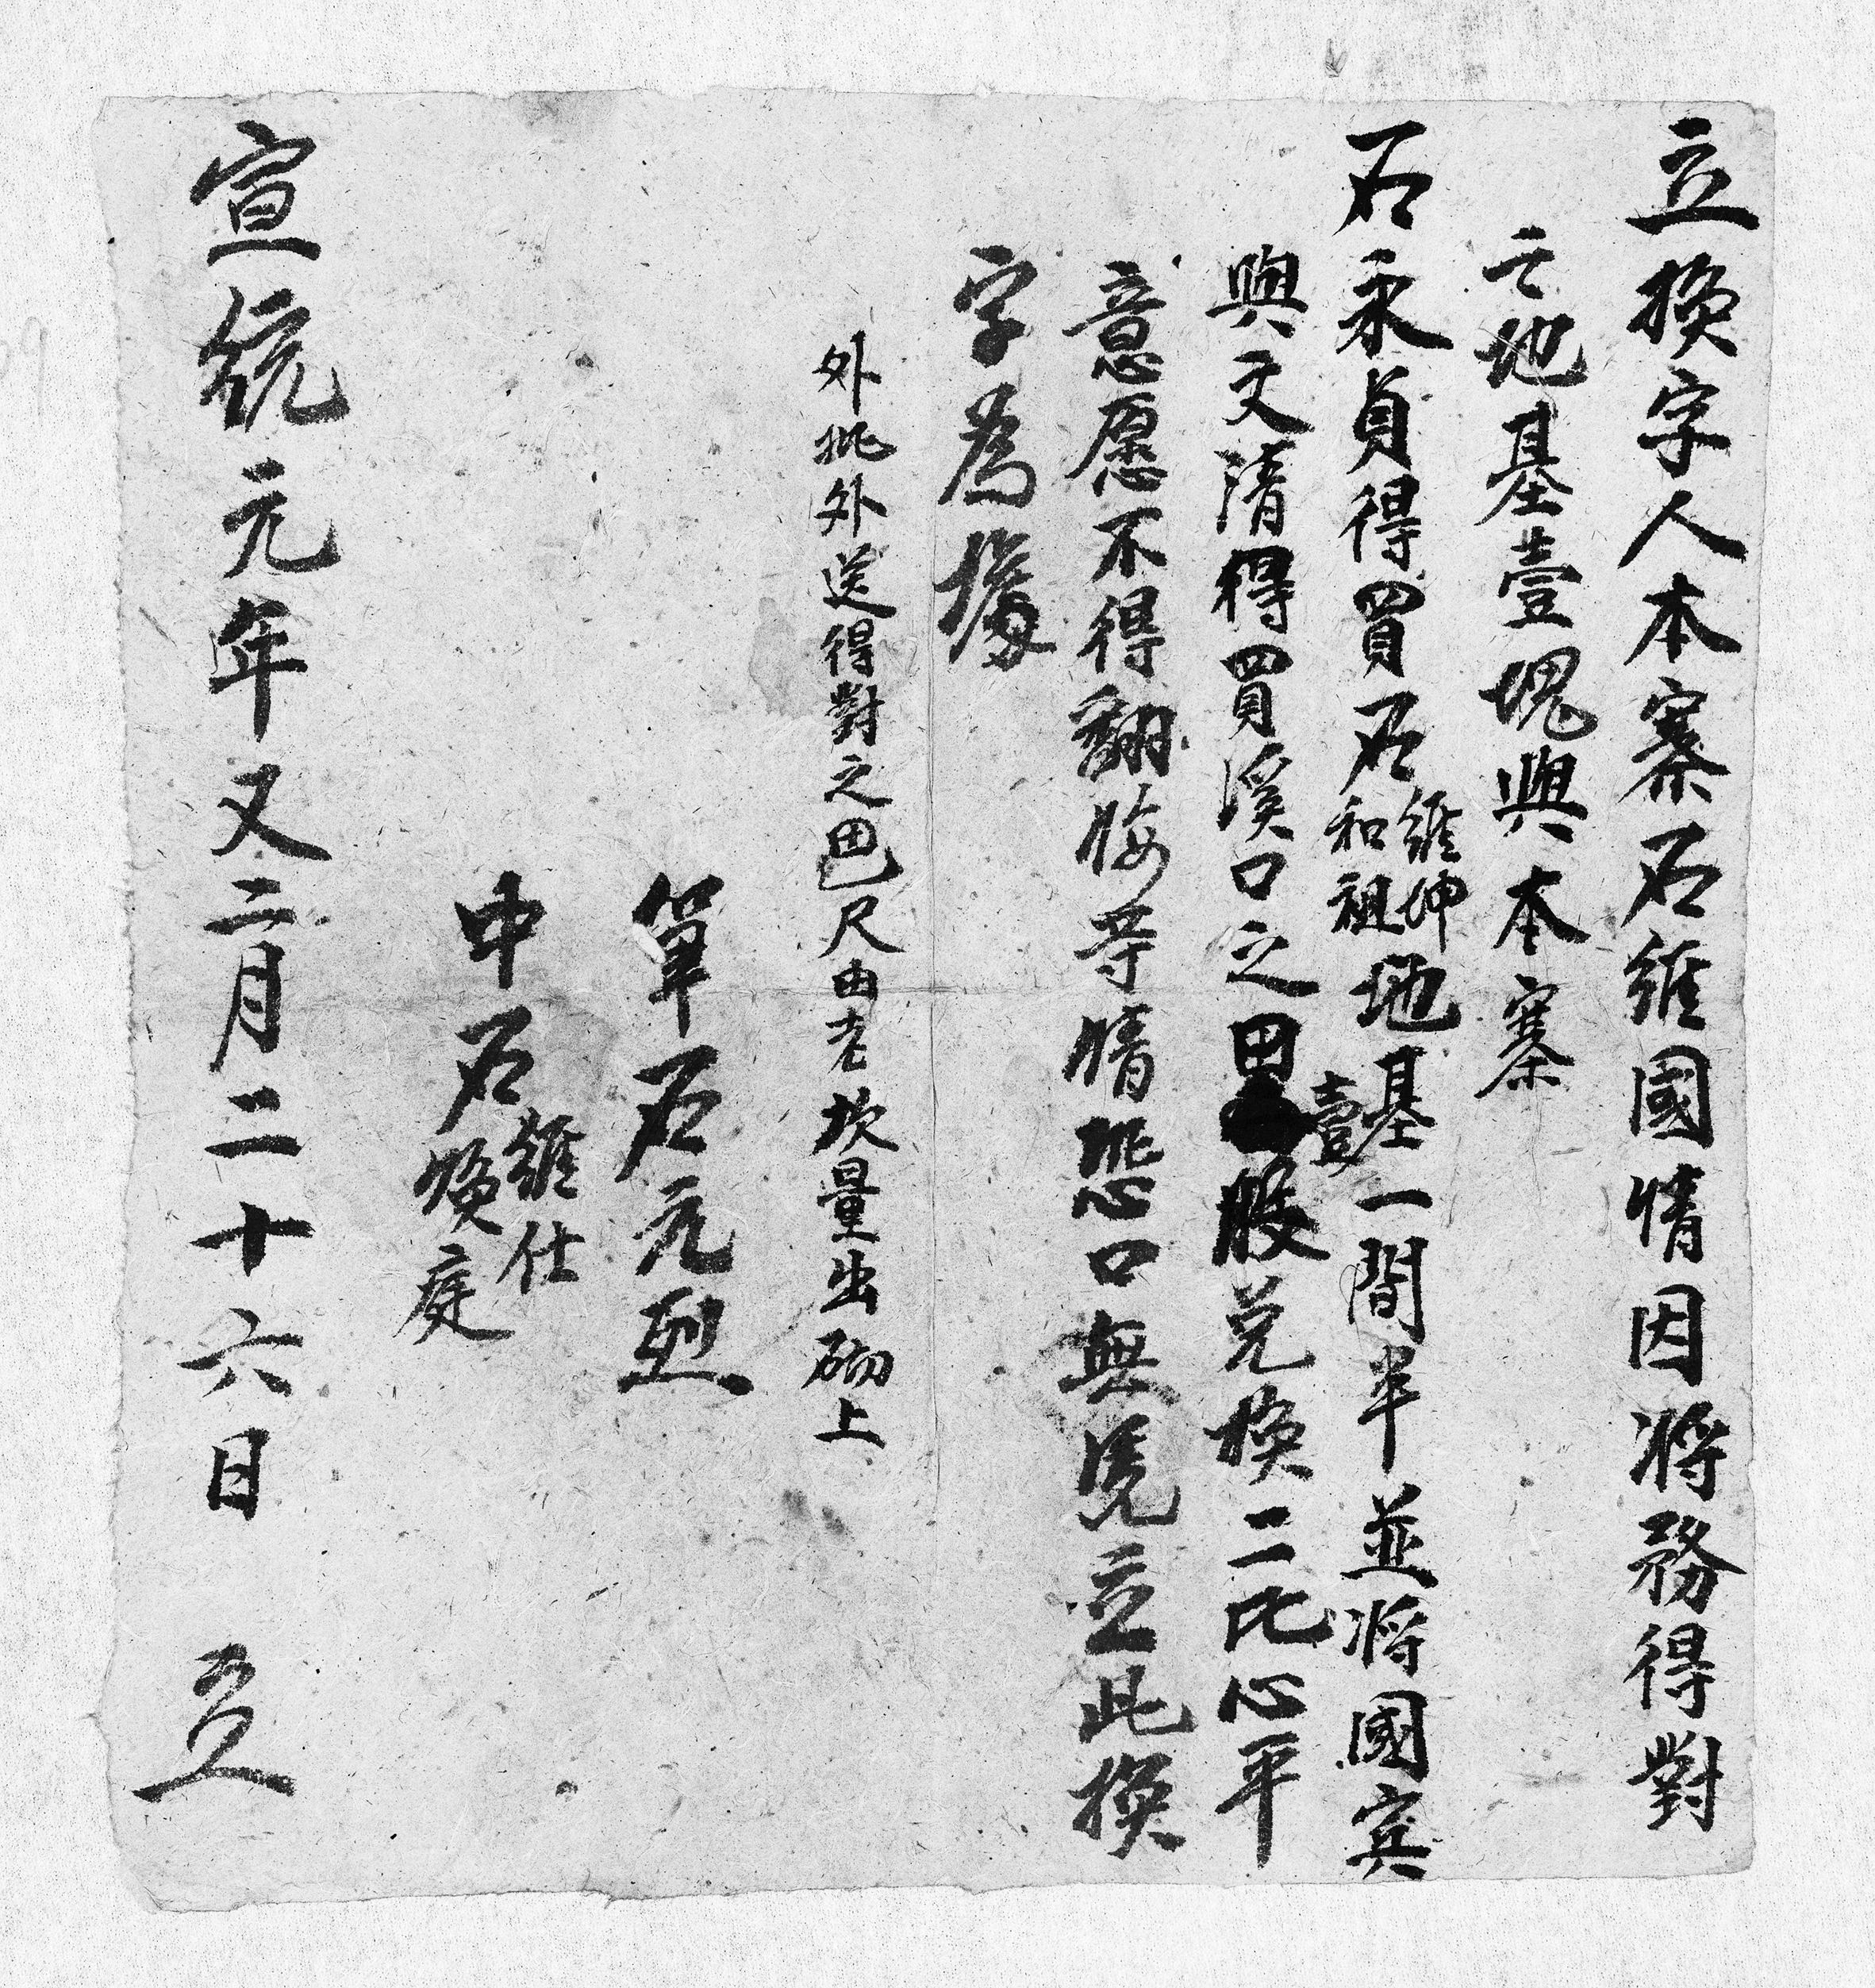 立換字人本寨石維國情因將務得對
之地基壹塊與本寨
石永貞得買石維坤和祖地基一間半並將國賓
與文清得買溪口之田壹股兑換二比心平
意愿不得翻悔等情恐口無凭立此換
字為據
外批外送得對之田邑尺由老坎量出砌上
筆石元烈
中石維仕煥庭
宣統元年又二月二十六日 立